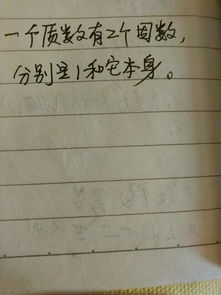 一个质数有2个因数，
分别是1和它本身。